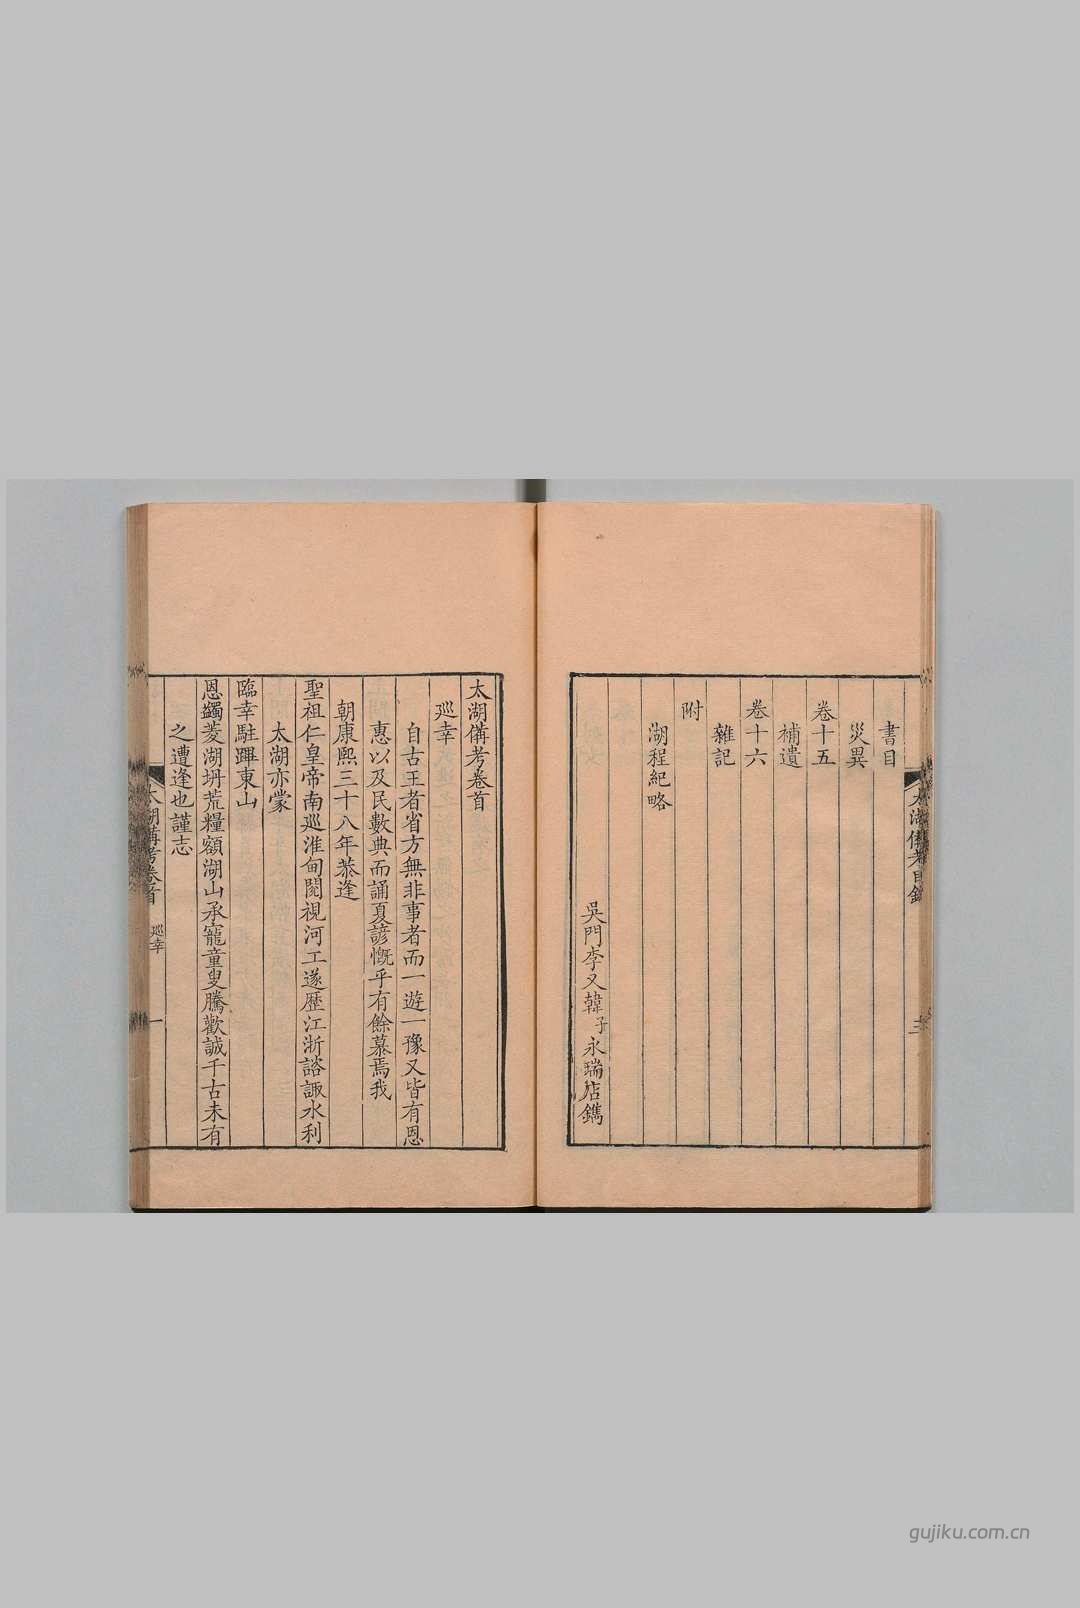 書目
災異
卷十五
補遺
卷十六
雜記
附
湖程紀略
吳門李又韓子永瑞店鐫
太湖備考目錄
三
太湖備考卷首
巡幸
自古王者省方無非事者而一遊一豫又皆有恩
惠以及民數典而誦夏諺慨乎有餘慕焉我
朝康熙三十八年恭逢
聖祖仁皇帝南巡淮甸閱視河工遂歷江浙諮諏水利
太湖亦蒙
臨幸駐蹕東山
恩蠲菱湖坍荒糧額湖山承寵童叟騰歡誠千古未有
之遭逢也謹志
太湖備考卷首
巡幸
一
gujiku.com.cn